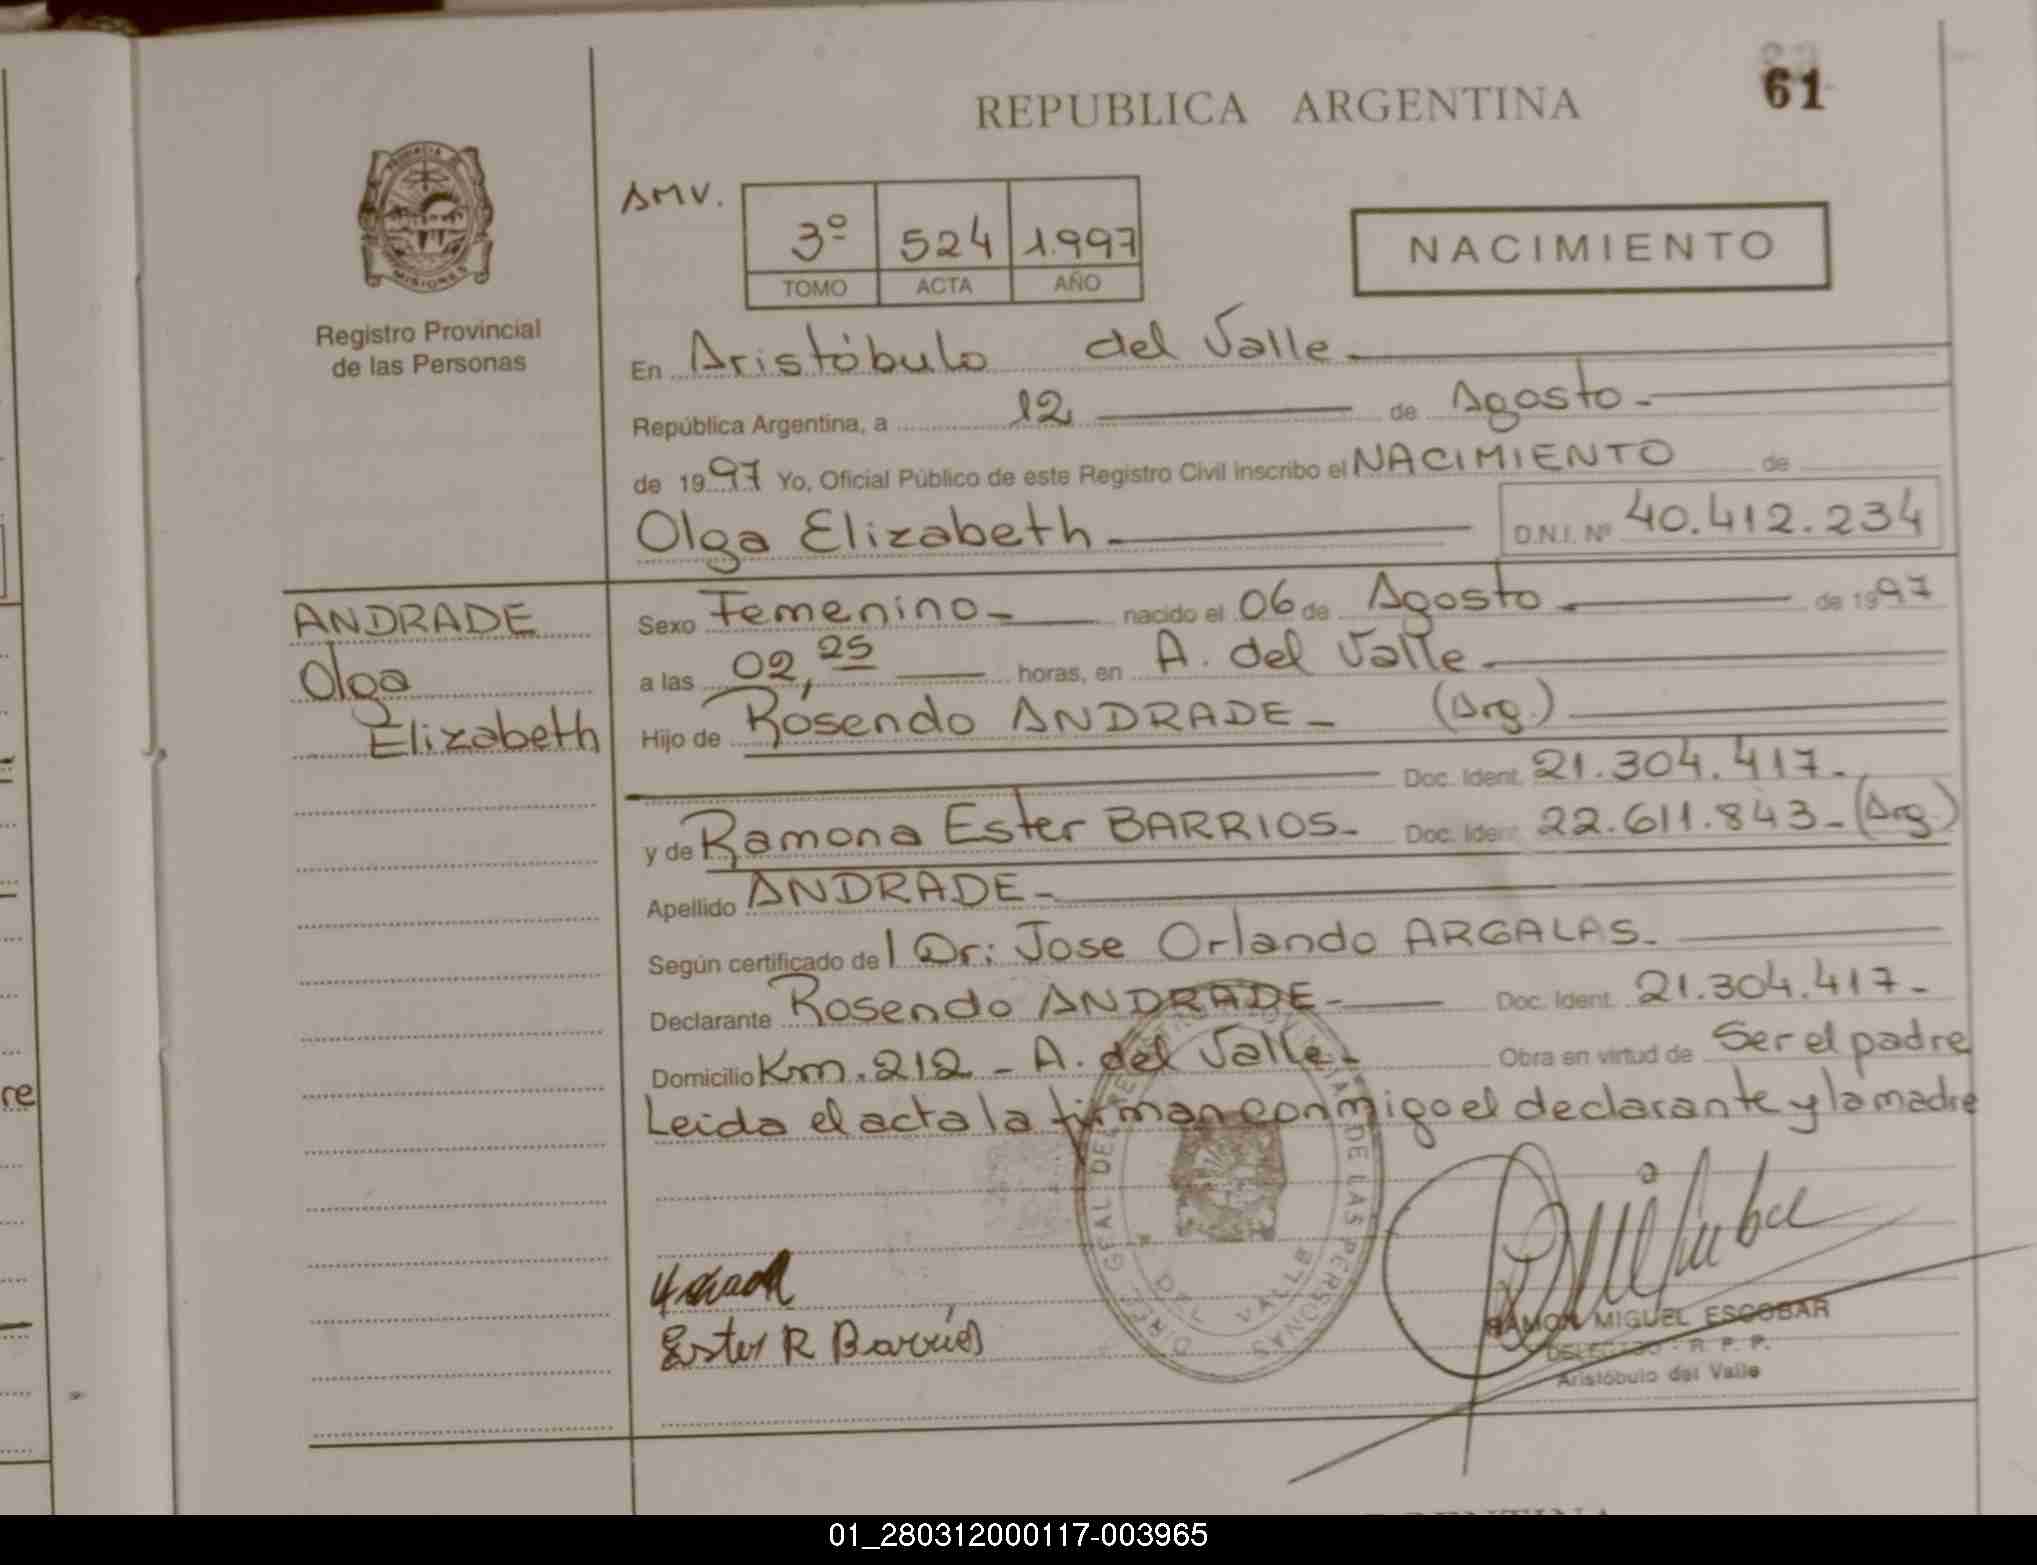 REPUBLICA ARGENTINA
61
PROVINCIA DE
MISIONES
Registro Provincial
de las Personas
AMV.
3º 524 1.997
TOMO ACTA AÑO
NACIMIENTO
En Aristóbulo del Valle.
República Argentina, a 12 de Agosto.
de 1997 Yo, Oficial Público de este Registro Civil inscribo el NACIMIENTO de
Olga Elizabeth. D.N.I. Nº 40.412.234
ANDRADE
Olga
Elizabeth
Sexo Femenino nacido el 06 de Agosto. de 1997
a las 02,25 horas, en A. del Valle.
Hijo de Rosendo ANDRADE - (Arg.)
Doc. Ident. 21.304.417.
y de Ramona Ester BARRIOS. Doc. Ident. 22.611.843 - (Arg.)
Apellido ANDRADE -
Según certificado del Dr: Jose Orlando ARGALAS.
Declarante Rosendo ANDRADE - Doc. Ident. 21.304.417 -
Domicilio Km. 212 - A. del Valle - Obra en virtud de Ser el padre
Leida el acta la firman conmigo el declarante y la madre
Ester R Barrios
DE LAS PERSONAS
DEL VALLE
RAMON MIGUEL ESCOBAR
DELEGADO - R. P. P.
Aristóbulo del Valle
re
01_280312000117-003965